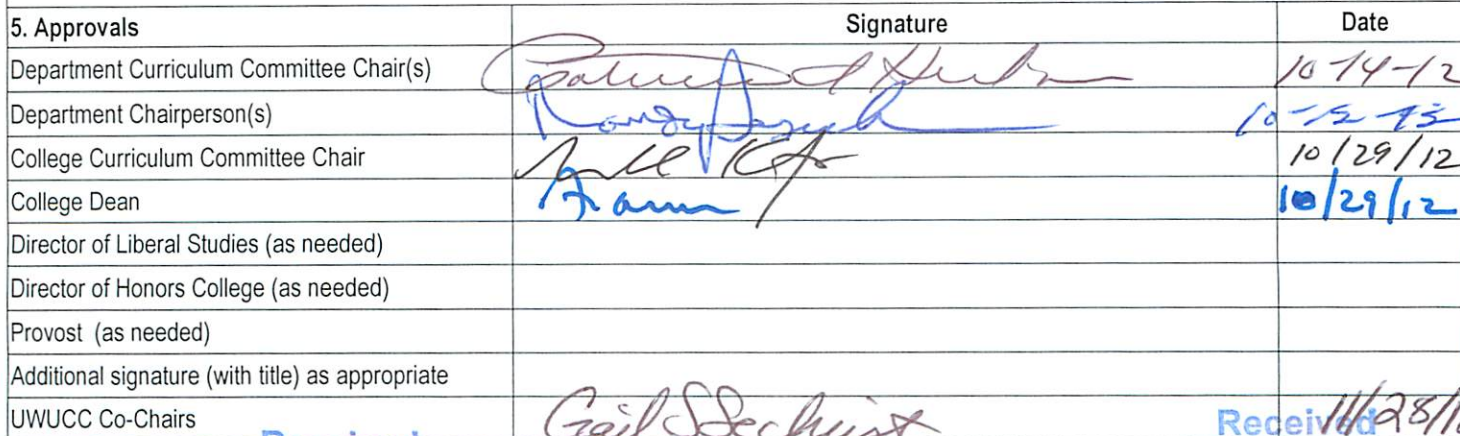 5. Approvals Signature Date
Department Curriculum Committee Chair(s) 10-14-12
Department Chairperson(s)
College Curriculum Committee Chair 10/29/12
College Dean 10/29/12
Director of Liberal Studies (as needed)
Director of Honors College (as needed)
Provost (as needed)
Additional signature (with title) as appropriate
UWUCC Co-Chairs Gail S Sechrist 11/28/1
Received Received